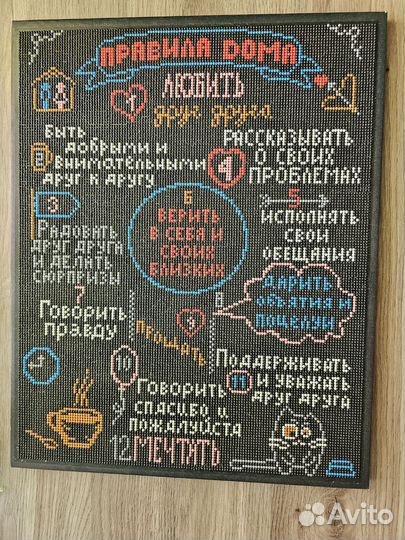 ПРАВИЛА ДОМА
1
ЛЮБИТЬ
друг друга
2
БЫТЬ
добрыми и
внимательными
друг к другу
4
РАССКАЗЫВАТЬ
О СВОИХ
ПРОБЛЕМАХ
3
Радовать
друг друга
и делать
сюрпризы
6
ВЕРИТЬ
В СЕБЯ И
СВОИХ
БЛИЗКИХ
5
ИСПОЛНЯТЬ
СВОИ
ОБЕЩАНИЯ
7
Говорить
правду
8
ДАРИТЬ
ОБЪЯТИЯ И
ПОЦЕЛУИ
9
ПРОЩАТЬ
10
Говорить
спасибо и
пожалуйста
11
Поддерживать
и уважать
друг друга
12 МЕЧТАТЬ
Avito